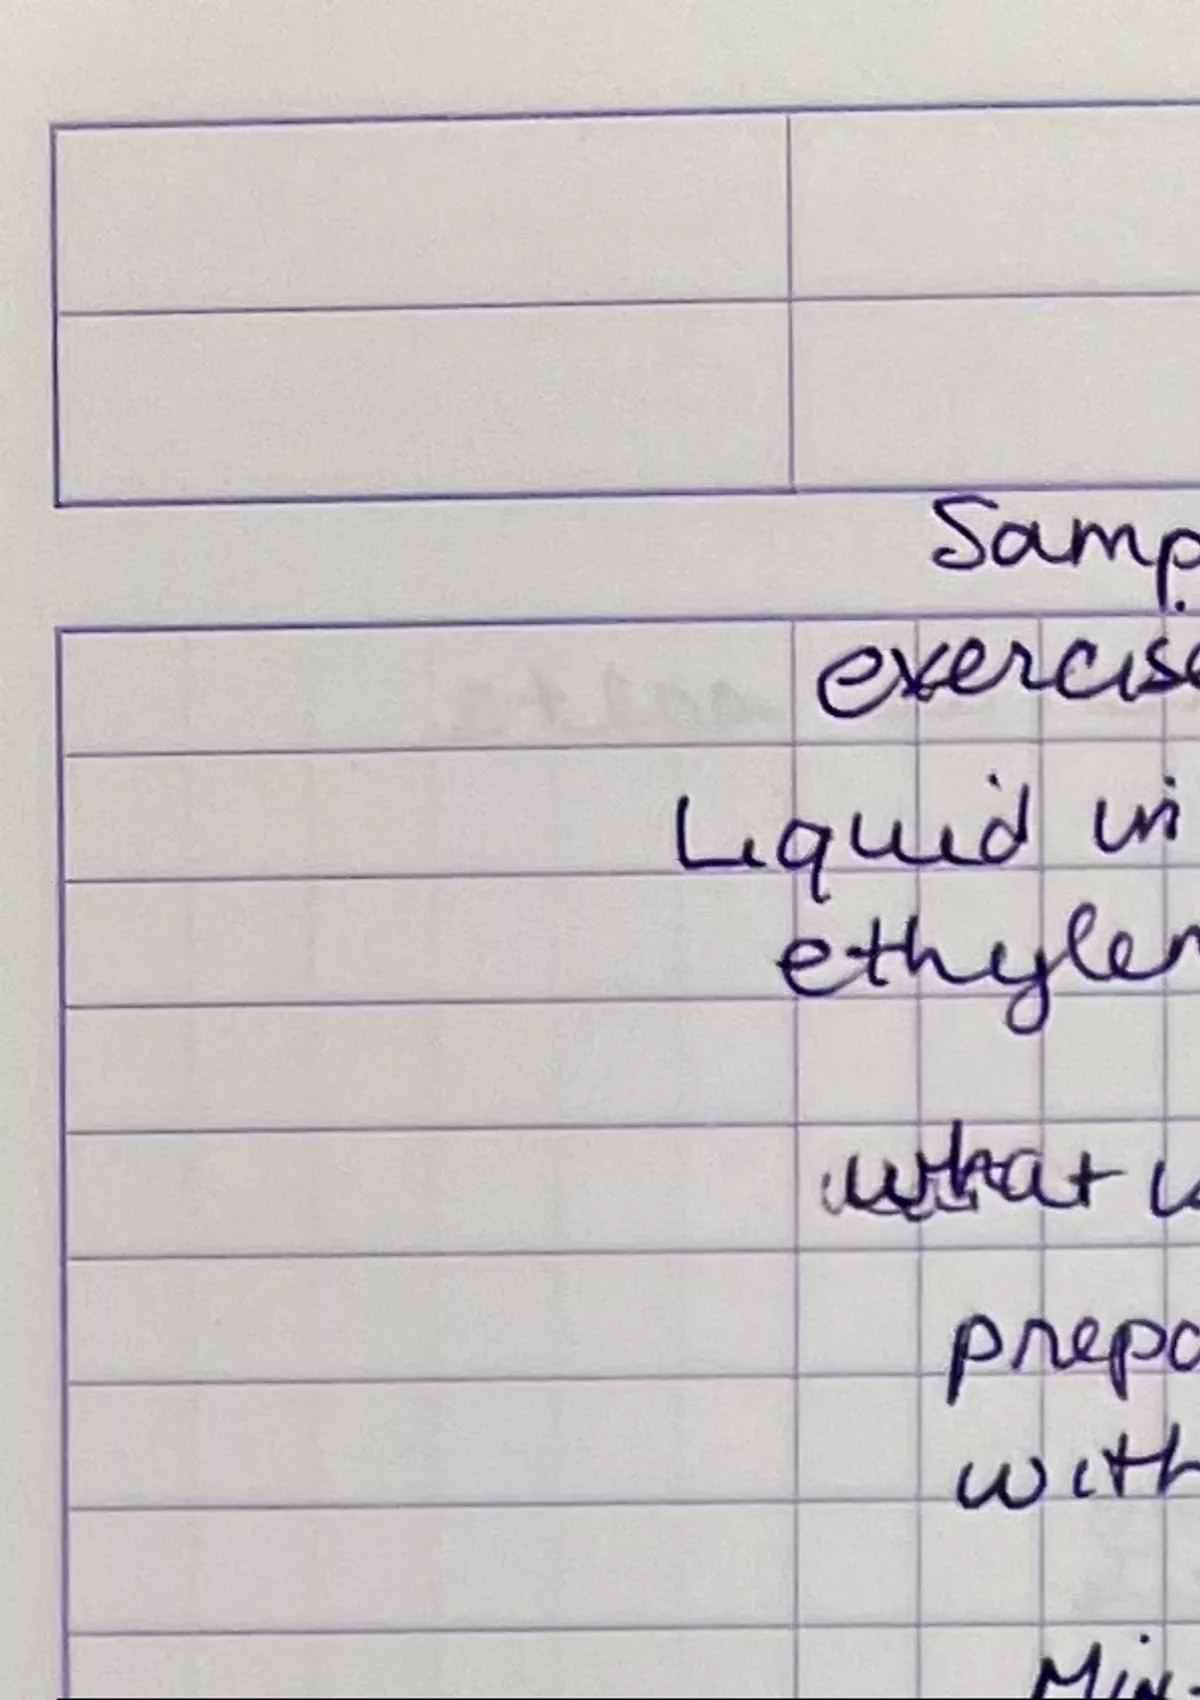 Samp
exercise
Liquid in
ethylen
what is
prepa
with
Mix